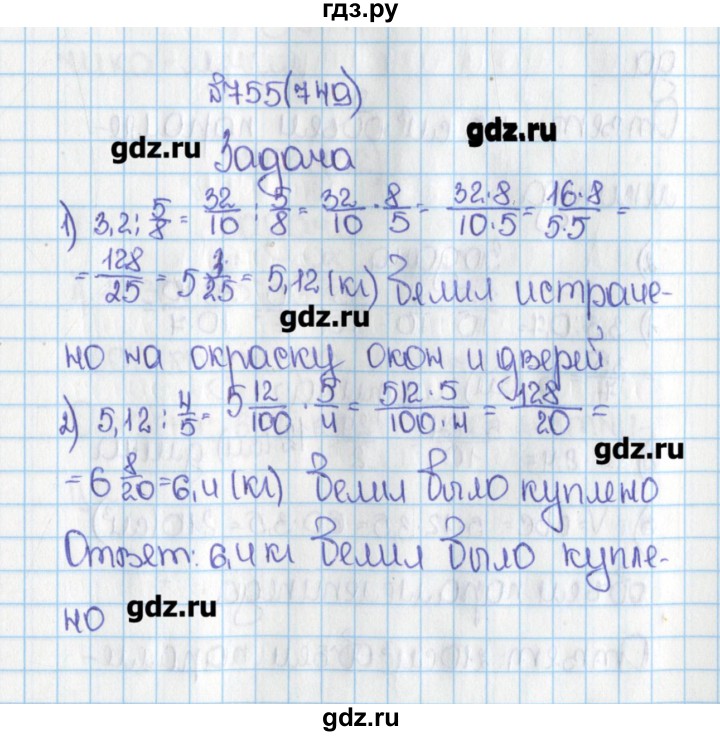 гдз.ру
№755(749)
gdz.ru
gdz.ru Задача
1) 3,2 : 5/8 = 32/10 : 5/8 = 32/10 · 8/5 = 32·8/10·5 = 16·8/5·5 =
= 128/25 = 5 3/25 = 5,12 (кг) белил истраче-
gdz.ru
но на окраску окон и дверей
2) 5,12 : 4/5 = 5 12/100 · 5/4 = 512·5/100·4 = 128/20 =
gdz.ru
= 6 8/20 = 6,4 (кг) белил было куплено
Ответ: 6,4 кг белил было купле-
но gdz.ru
gdz.ru